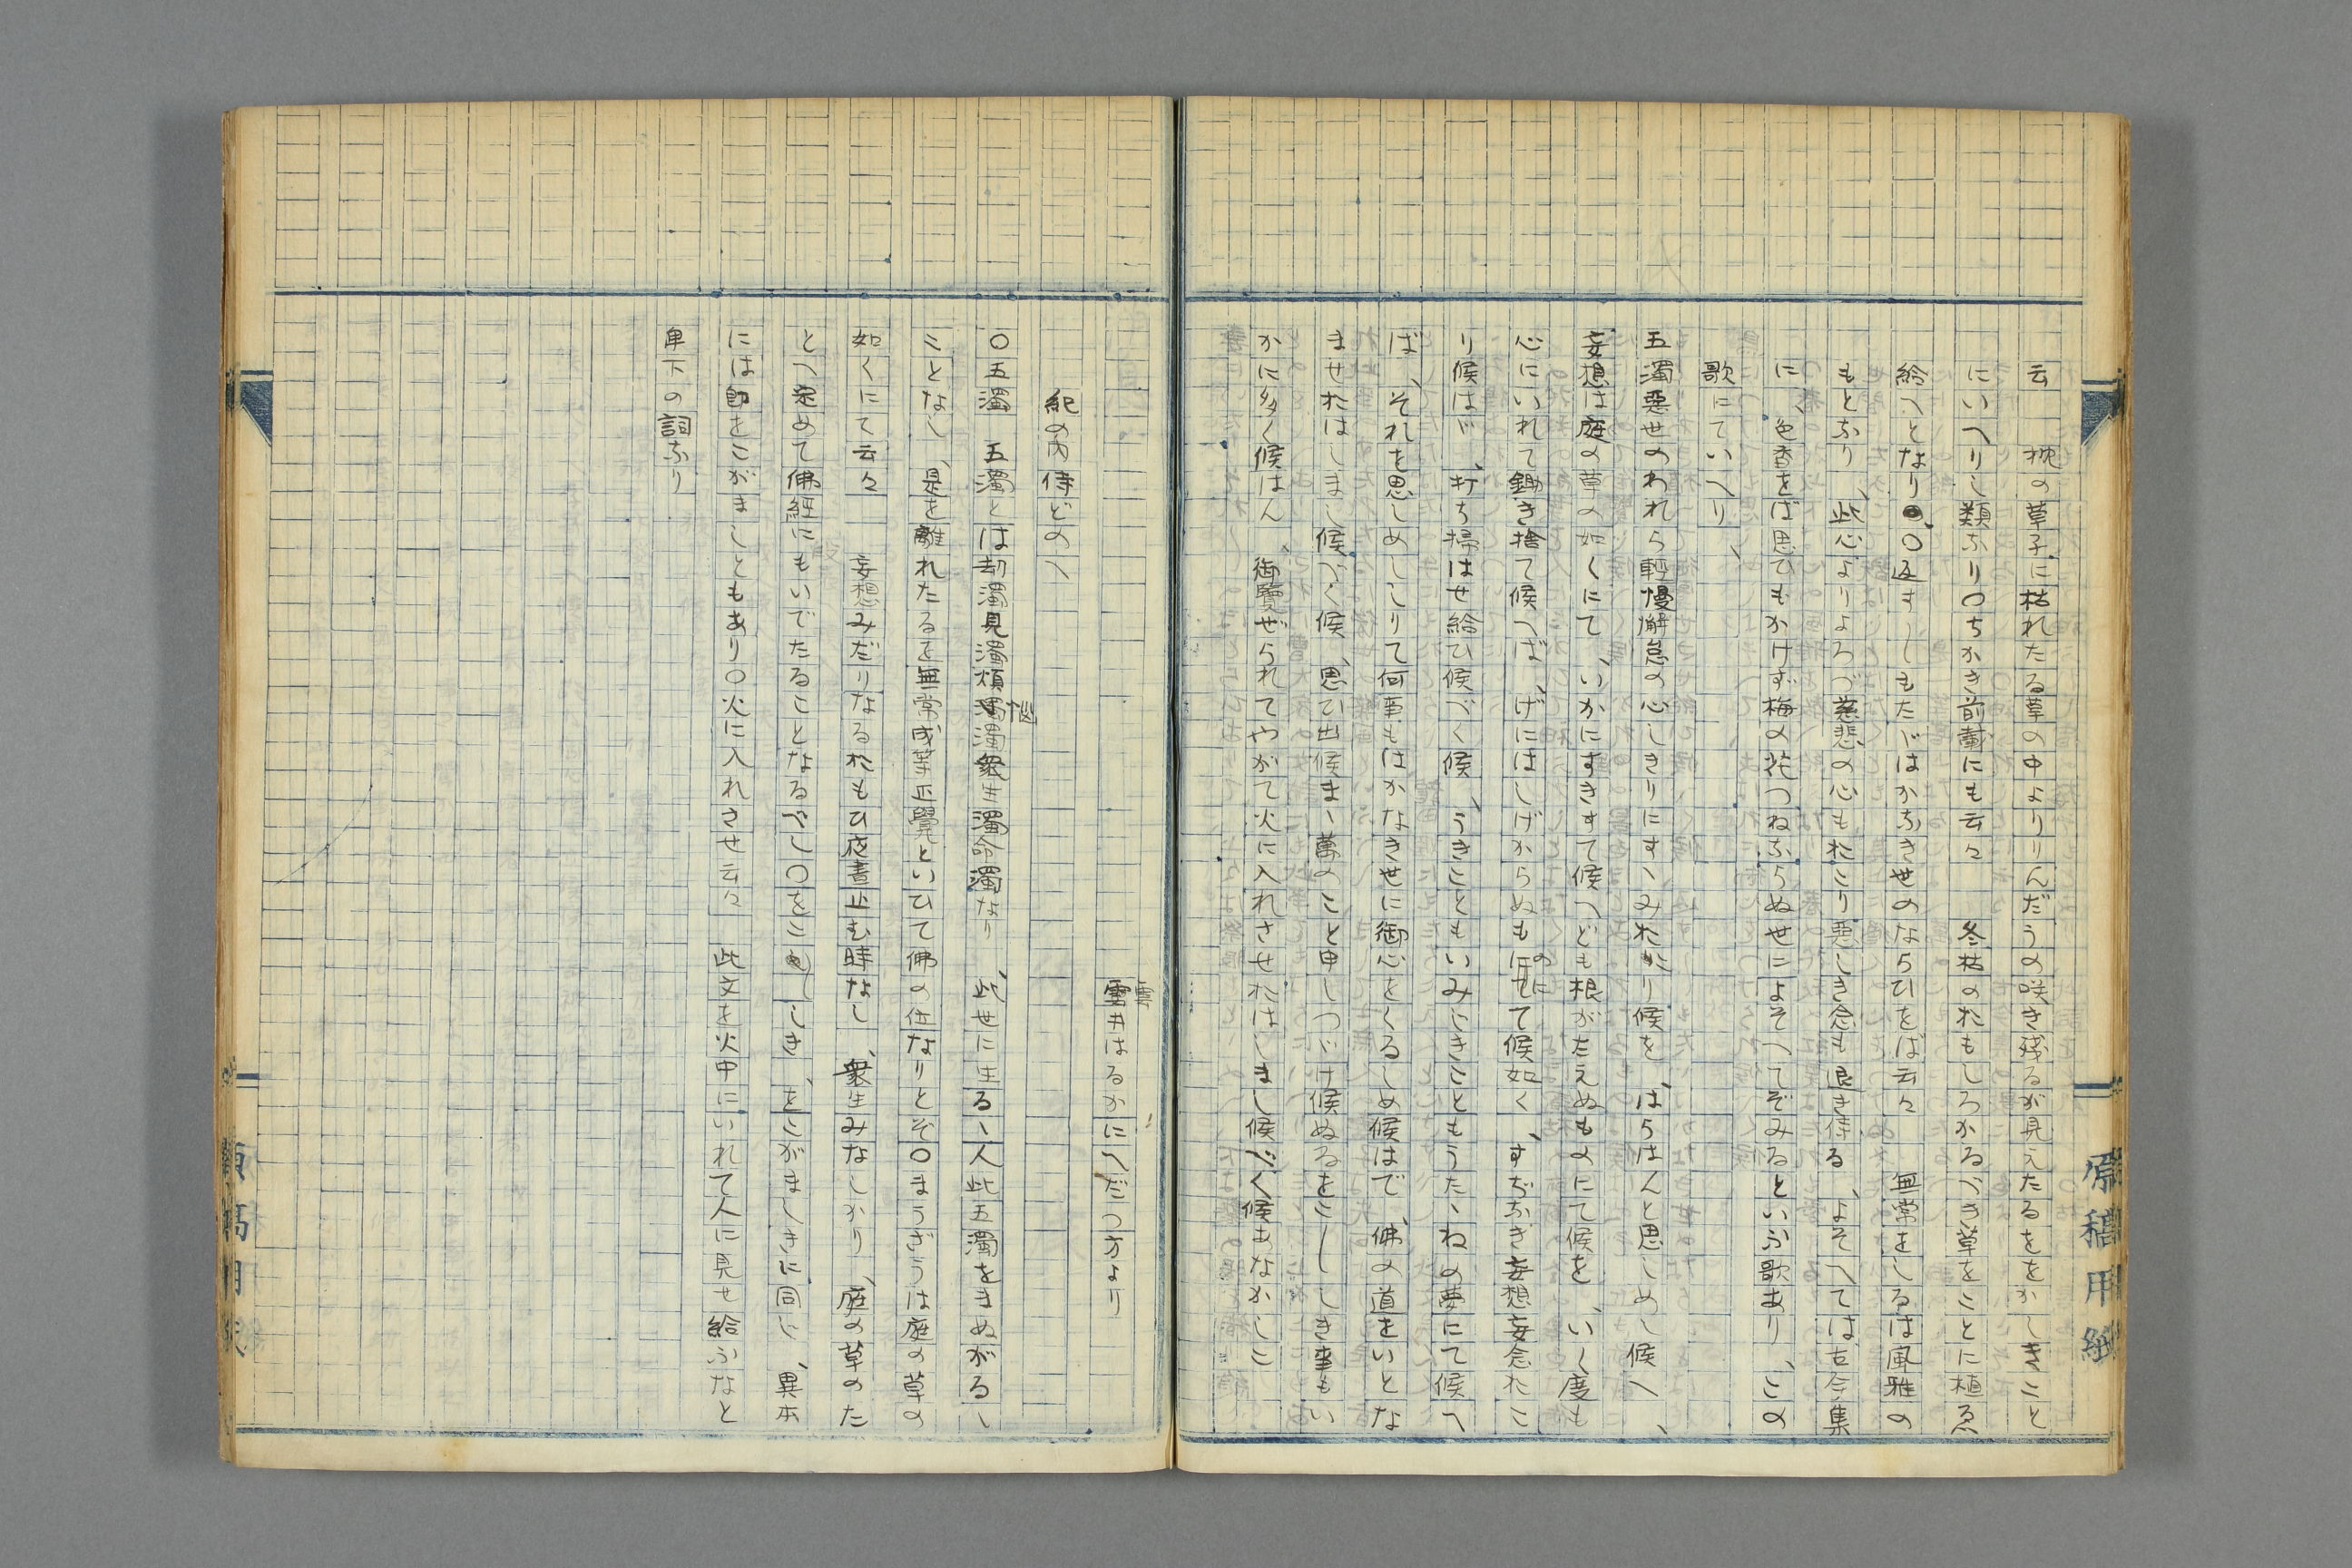 云　枕の草子に枯れたる草の中よりりんだうの咲き残るが見えたるをかしきこと
にいへりし類なり〇ちかき前栽にも云々　冬枯のおもしろかるべき草をことに植ゑ
給へとなり〇返すしもたゞはかなき世のならひをば云々　無常をしるは風雅の
もとなり、此心よりよろづ慈悲の心もおこり悪しき念も退き侍る、よそへては古今集
に、色香をば思ひもかけず梅の花つねならぬ世によそへてぞみるといふ歌あり、この
歌にていへり、
五濁悪世のわれら軽慢懈怠の心しきりにすゝみたかり候を、はらはんと思しめし候へ、
妄想は庭の草の如くにて、いかにすきすて候へども根がたえぬものにて候を、いく度も
心にいれて鋤き捨て候へば、げにはしげからぬものにて候如く、すぢなき妄想妄念おこ
り候はゞ、打ち掃はせ給ひ候べく候、うきこともいみじきこともうたゝねの夢にて候へ
ば、それを思しめししりて何事もはかなき世に御心をくるしめ候はで、佛の道をいとな
ませおはしまし候べく候、思ひ出候まゝ萬のこと申しつゞけ候ぬるをこしき事もい
かに多く候はん、御覽ぜられてやがて火に入れさせおはしまし候べく候あなかしこ
雲井はるかにへだつ方より
紀の内侍どのへ
〇五濁　五濁とは劫濁見濁煩惱濁衆生濁命濁なり、此世に生るゝ人此五濁をまぬがるゝ
ことなし、是を離れたるを無常成等正覺といひて佛の位なりとぞ〇まうざうは庭の草の
如くにて云々　妄想みだりなるおもひ夜晝止む時なし、衆生みなしかり、庭の草のた
とへ定めて佛經にもいでたることなるべし〇をこしき、をこがましきに同じ、異本
には御をこがましともあり〇火に入れさせ云々　此文を火中にいれて人に見せ給ふなと
卑下の詞なり
原稿用紙